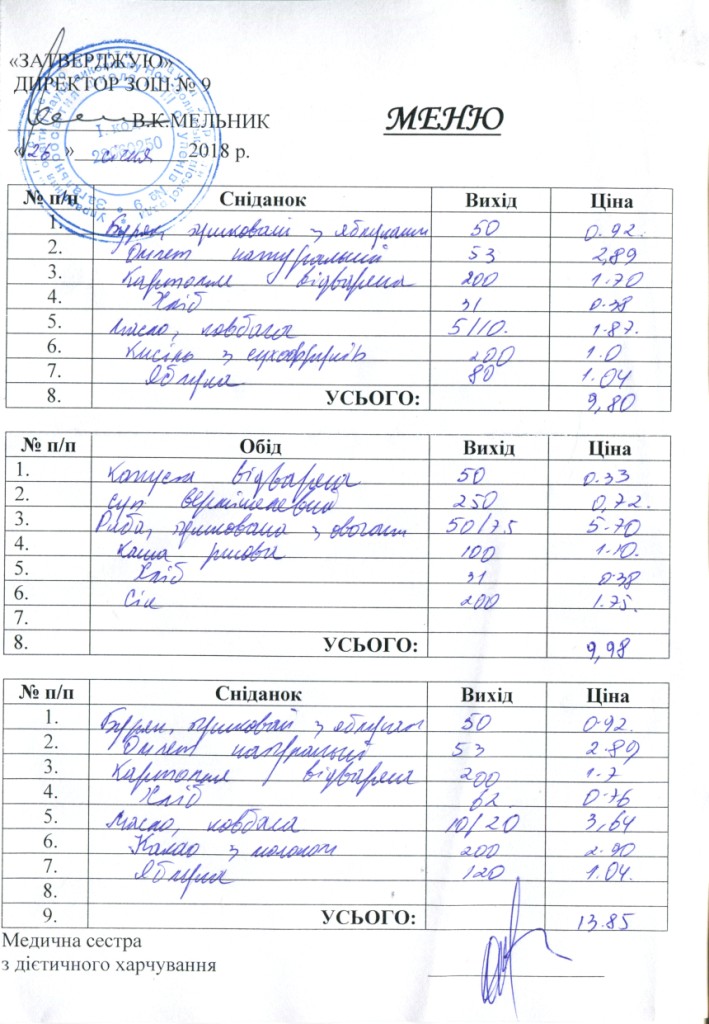 «ЗАТВЕРДЖУЮ»
ДИРЕКТОР ЗОШ № 9
В.К.МЕЛЬНИК
МЕНЮ
«26» січня 2018 р.
№ п/п Сніданок Вихід Ціна
1. Буряк, тушкований з яблуками 50 0.92.
2. Омлет натуральний 53 2,89
3. Картопля відварена 200 1.70
4. Хліб 31 0.38
5. Масло, ковбаса 5/10. 1.87.
6. Кисіль з сухофруктів 200 1.0
7. Яблука 80 1.04
8. УСЬОГО: 9,80
№ п/п Обід Вихід Ціна
1. Капуста відварена 50 0.33
2. суп вермішелевий 250 0,72.
3. Риба, тушкована з овочами 50/75 5.70
4. Каша рисова 100 1.10.
5. Хліб 31 0.38
6. Сік 200 1.75.
7.
8. УСЬОГО: 9,98
№ п/п Сніданок Вихід Ціна
1. Буряк, тушкований з яблуками 50 0.92.
2. Омлет натуральний 53 2.89
3. Картопля відварена 200 1.7
4. Хліб 62. 0.76
5. Масло, ковбаса 10/20 3,64
6. Какао з молоком 200 2.90
7. Яблука 120 1.04.
8.
9. УСЬОГО: 13.85
Медична сестра
з дієтичного харчування